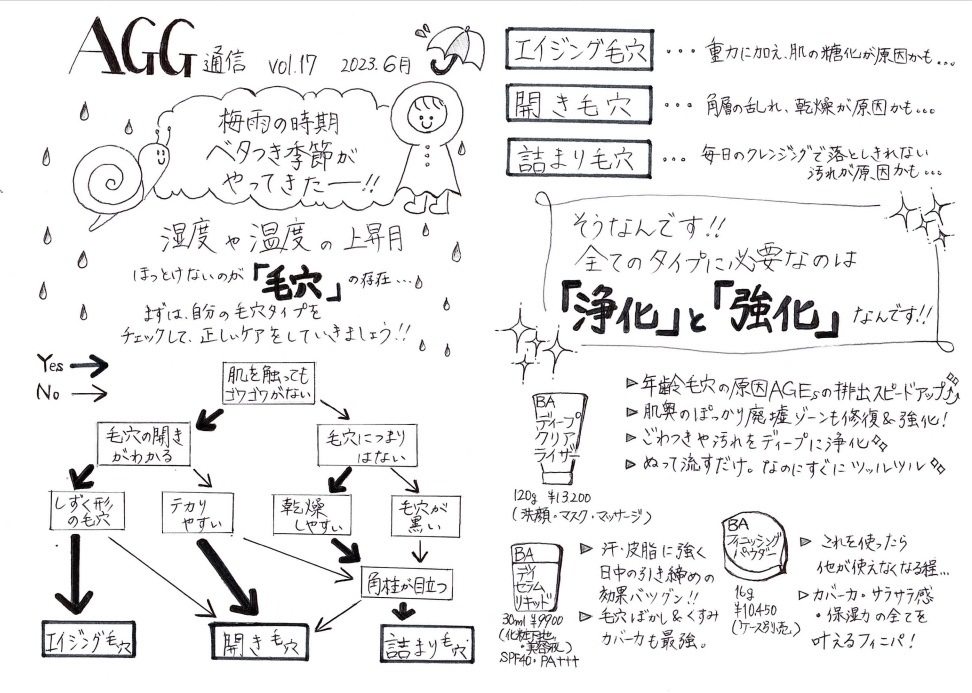 AGG通信 vol.17 2023.6月
梅雨の時期
ベタつき季節が
やってきたー!!
湿度や温度の上昇月
ほっとけないのが「毛穴」の存在...
まずは、自分の毛穴タイプを
チェックして、正しいケアをしていきましょう!!
Yes
No
肌を触っても
ゴワゴワがない
毛穴の開き
がわかる
毛穴につまり
はない
しずく形
の毛穴
テカリ
やすい
乾燥
しやすい
毛穴が
黒い
角柱が目立つ
エイジング毛穴
開き毛穴
詰まり毛穴
エイジング毛穴 ・・・ 重力に加え、肌の糖化が原因かも...
開き毛穴 ・・・ 角層の乱れ、乾燥が原因かも...
詰まり毛穴 ・・・ 毎日のクレンジングで落としきれない
汚れが原因かも...
そうなんです!!
全てのタイプに必要なのは
「浄化」と「強化」なんです!!
BA
ディープ
クリア
ライザー
120g ¥13200
(洗顔・マスク・マッサージ)
▷年齢毛穴の原因AGEsの排出スピードアップ
▷肌奥のぽっかり廃墟ゾーンも修復&強化!
▷ごわつきや汚れをディープに浄化
▷ぬって流すだけ。なのにすぐにツッルツル
BA
デイ
セラム
リキッド
30ml ¥9900
(化粧下地
・美容液)
SPF40・PA+++
▷汗・皮脂に強く
日中の引き締めの
効果バツグン!!
▷毛穴ぼかし&くすみ
カバー力も最強。
BA
フィニッシング
パウダー
16g
¥10,450
(ケース別売。)
▷これを使ったら
他が使えなくなる程...
▷カバー力・サラサラ感
・保湿力の全てを
叶えるフィニパ!